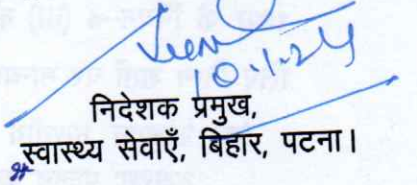 10.1.24
निदेशक प्रमुख,
स्वास्थ्य सेवाएँ, बिहार, पटना।